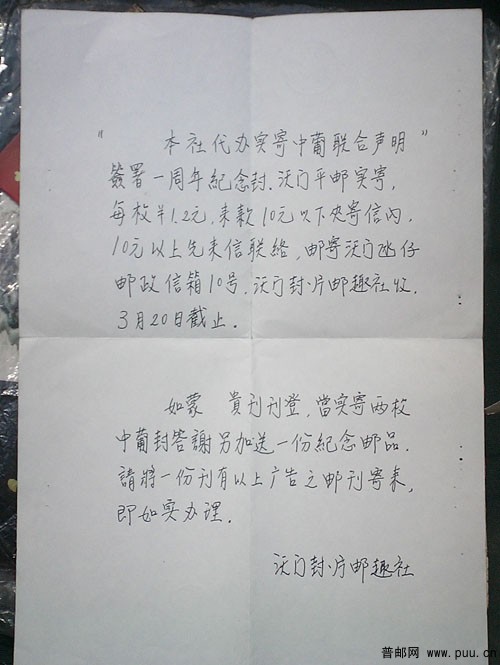 "本社代办实寄中葡联合声明"
簽署一周年紀念封.沃门平邮实寄,
每枚¥1.2元,来款10元以下夹寄信内,
10元以上先来信联络,邮寄沃门氹仔
邮政信箱10号.沃门封、片邮趣社收.
3月20日截止.
如蒙 貴刊刊登,當实寄两枚
中葡封答謝另加送一份紀念邮品.
請將一份刊有以上广告之邮刊寄来,
即如实办理.
沃门封、片邮趣社
普邮网 www.puu.cn